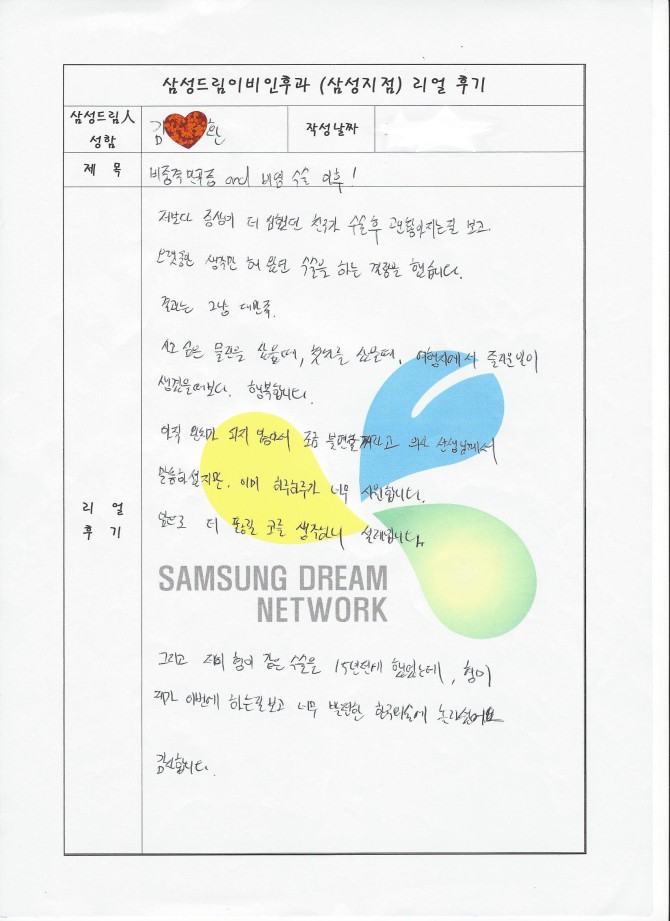 삼성드림이비인후과 (삼성지점) 리얼 후기
삼성드림人
성함
김 환
작성날짜
제 목
비중격만곡증 and 비염 수술 이후!
저보다 증상이 더 심했던 친구가 수술후 고쳐지는걸 보고.
오랫동안 생각만 해 왔던 수술을 하는 결정을 했습니다.
결과는 그냥 대만족.
사고 싶은 물건을 샀을때, 첫차를 샀을때, 여행지에서 즐거운일이
생겼을때보다. 행복합니다.
아직 완치가 되지 않아서 조금 불편할꺼라고 의사 선생님께서
말씀하셨지만. 이미 하루하루가 너무 시원합니다.
앞으로 더 뚫릴 코를 생각하니 설레입니다.
리 얼
후 기
SAMSUNG DREAM
NETWORK
그리고 저희 형이 같은 수술을 15년전에 했었는데, 형이
제가 이번에 하는걸보고 너무 발전한 한국의술에 놀라셨어요
감사합니다.